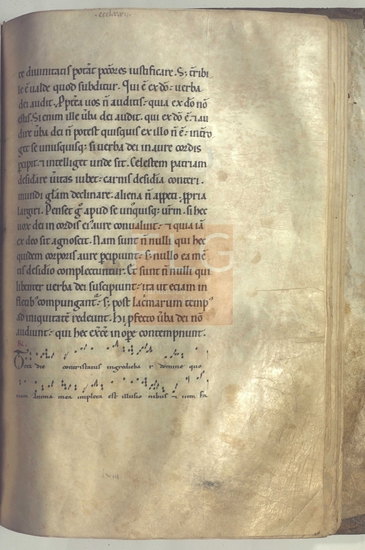 te diuinitatis potat pccōres iustificare. S; tribi
le ē ualde quod subditur. Qui ē ex dō uerba
dei audit. Ppt̄a uos n̄ auditis quia ex dō nō
estis. Si enim ille ūba dei audit. qui ex dō ē au
dire ūba dei n̄ potest quisquis ex illo n̄ ē. int̄ro
get se unusquisq; si uerba dei in aure cordis
pcipit. & intelliget unde sit. Celestem patriam
desiderare ūitas iubet. carnis desidia conteri.
mundi gl̄am declinare. aliena n̄ appeti. ppria
largiri. Penset g̊ apud se unusquisq; ūrm. si hec
uox dei in cordis ei aure conualuit. & quia iā
ex deo sit agnoscit. Nam sunt n̄ nulli qui hec
quidem corporis aure pcipiunt. s; nullo ea mē
tis desidio complectuntur. Et sunt n̄ nulli qui
libenter uerba dei suscipiunt. ita ut etiam in
fletib compungantˀ. s; post lacrimarum temp
ad iniquitatē redeunt. Hi pfecto ūba dei nō
audiunt. qui hec in ope contempnunt.
die contristatus ingrediebar domine quo
anima mea impleta est illusionibus